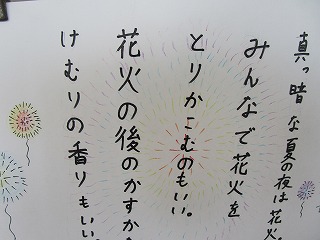 真っ暗な夏の夜は花火。
みんなで花火を
とりかこむのもいい。
花火の後のかすか
けむりの香りもいい